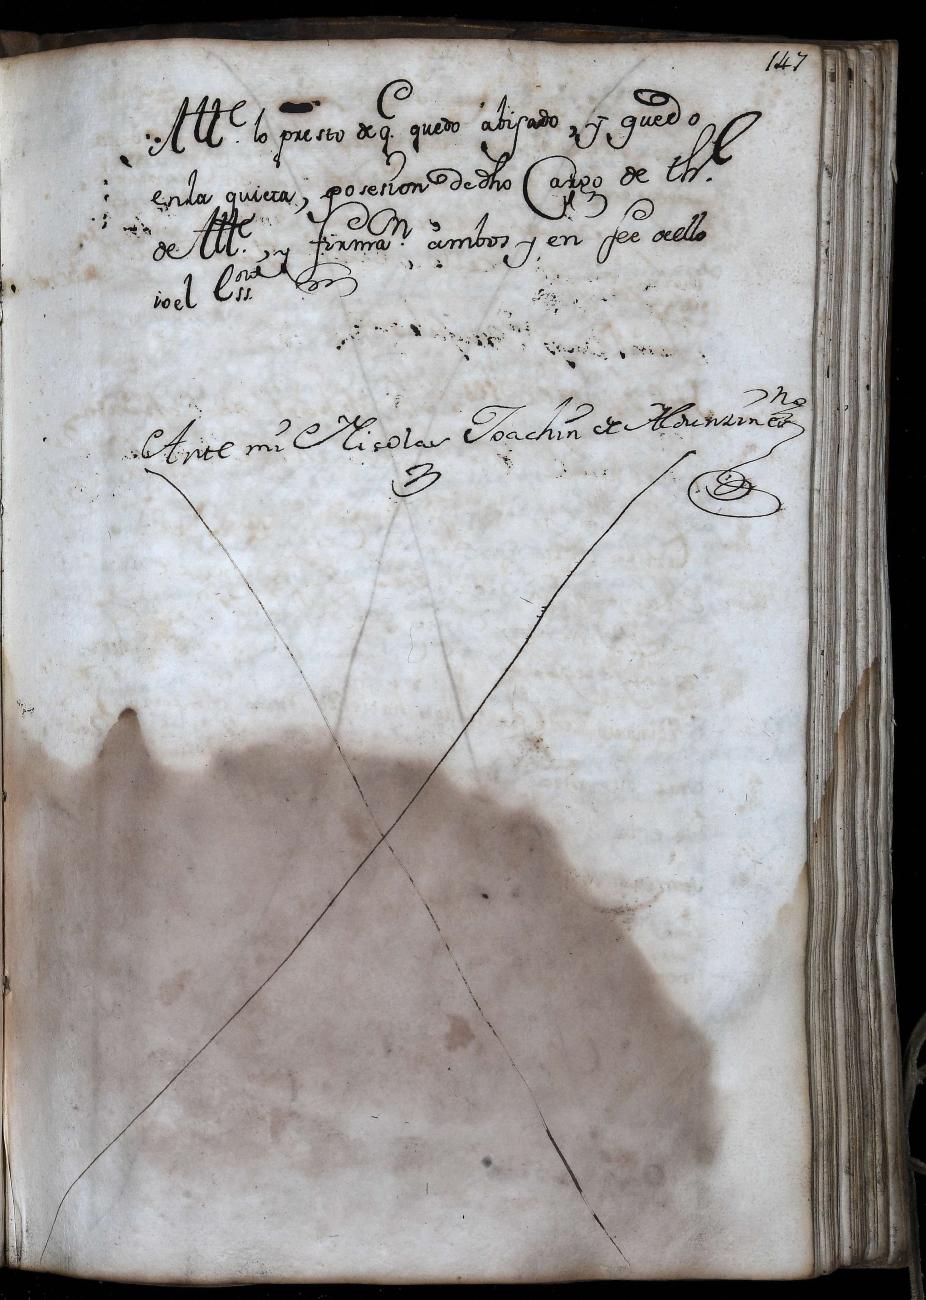 147
Alle. lo presto de q. quedo abisado, y quedo
en la quieta, posesion de dho Cargo de thl.
de Alle., y firman. ambos y en fee de ello
io el ss.
Ante mi Nicolas Joachin de